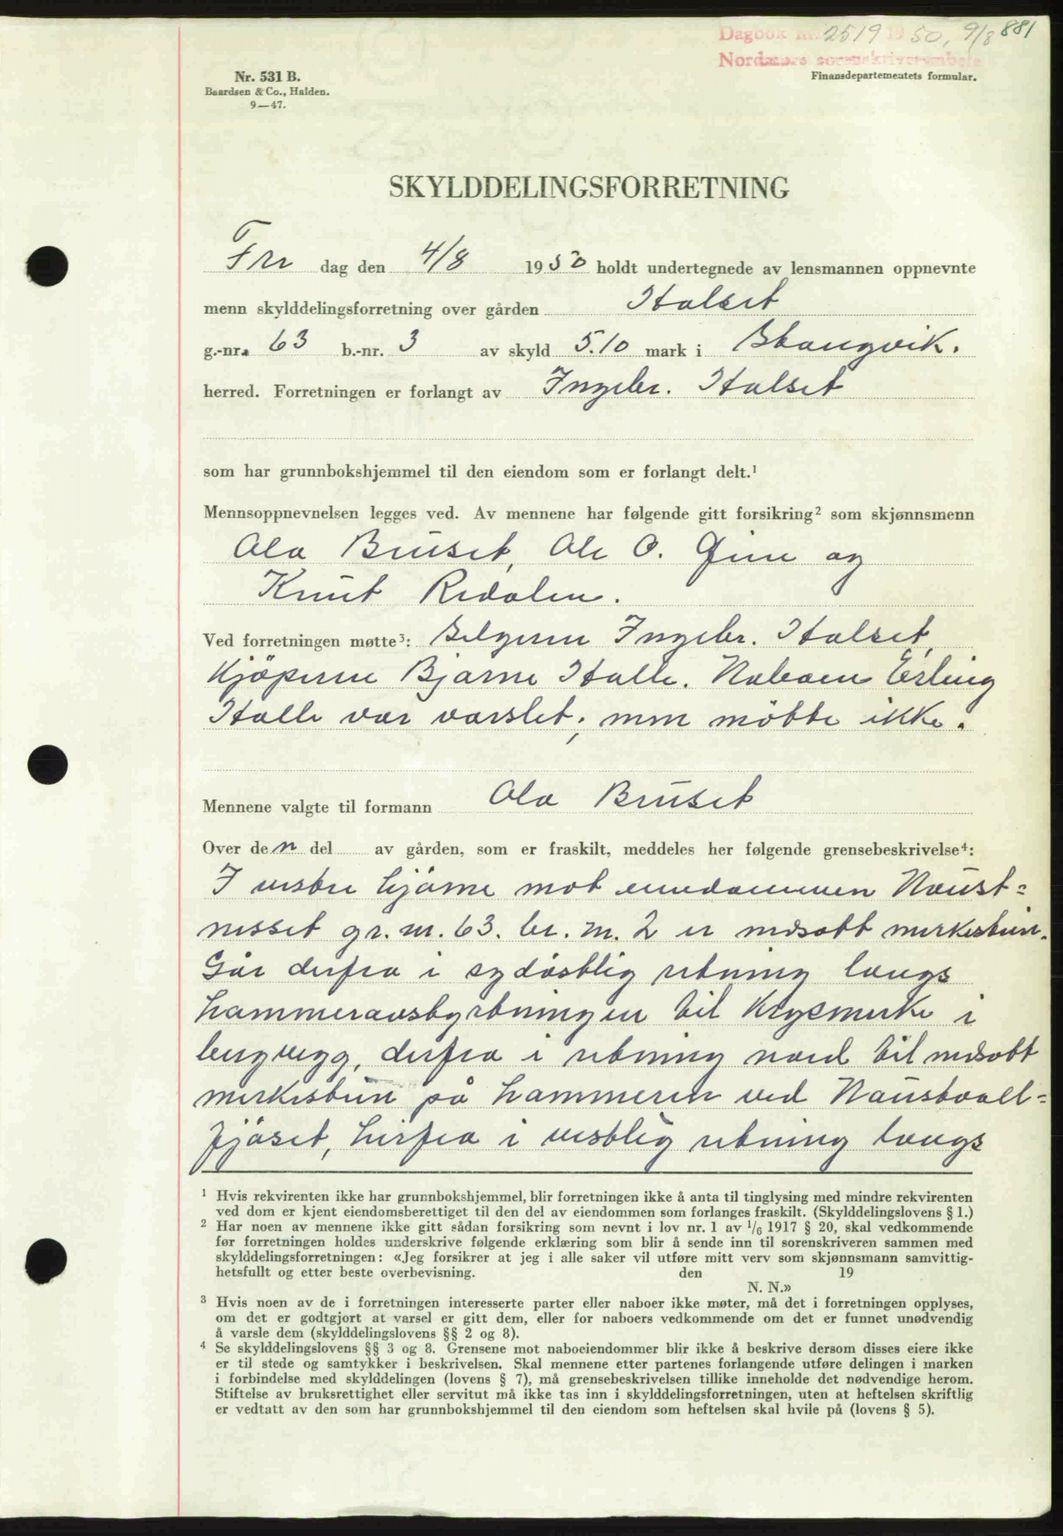 Dagbok nr. 2519 1950, 9/8 881
Nordmøre sorenskriverembete
Nr. 531 B.
Baardsen & Co., Halden.
9—47.
Finansdepartementets formular.
SKYLDDELINGSFORRETNING
Fre dag den 4/8 1950 holdt undertegnede av lensmannen oppnevnte
menn skylddelingsforretning over gården Halset
g.-nr. 63 b.-nr. 3 av skyld 5.10 mark i Stangvik.
herred. Forretningen er forlangt av Ingebr. Halset
som har grunnbokshjemmel til den eiendom som er forlangt delt.¹
Mennsoppnevnelsen legges ved. Av mennene har følgende gitt forsikring² som skjønnsmenn
Ola Bruset, Ole O. Gjeie og
Knut Redalen.
Ved forretningen møtte³: Selgeren Ingebr. Halset,
Kjöperen Bjarne Halle. Naboen Erling
Halle var varslet; men mötte ikke.
Mennene valgte til formann Ola Bruset
Over den del av gården, som er fraskilt, meddeles her følgende grensebeskrivelse⁴:
I vestre hjörne mot eiendommen Naust=
nesset gr. nr. 63. br. nr. 2 er nedsatt merkestein.
Går derfra i sydöstlig retning langs
hammeravstyrtningen til Krysmerke i
bergvegg, derfra i retning nord til nedsatt
merkestein på hammeren ved Naustvoll=
fjöset, herfra i vestlig retning langs
¹ Hvis rekvirenten ikke har grunnbokshjemmel, blir forretningen ikke å anta til tinglysing med mindre rekvirenten
ved dom er kjent eiendomsberettiget til den del av eiendommen som forlanges fraskilt. (Skylddelingslovens § 1.)
² Har noen av mennene ikke gitt sådan forsikring som nevnt i lov nr. 1 av 1/6 1917 § 20, skal vedkommende
før forretningen holdes underskrive følgende erklæring som blir å sende inn til sorenskriveren sammen med
skylddelingsforretningen: «Jeg forsikrer at jeg i alle saker vil utføre mitt verv som skjønnsmann samvittig-
hetsfullt og etter beste overbevisning. den 19
N. N.»
³ Hvis noen av de i forretningen interesserte parter eller naboer ikke møter, må det i forretningen opplyses,
om det er godtgjort at varsel er gitt dem, eller for naboers vedkommende om det er funnet unødvendig
å varsle dem (skylddelingslovens §§ 2 og 8).
⁴ Se skylddelingslovens §§ 3 og 8. Grensene mot naboeiendommer blir ikke å beskrive dersom disses eiere ikke
er til stede og samtykker i beskrivelsen. Skal mennene etter partenes forlangende utføre delingen i marken
i forbindelse med skylddelingen (lovens § 7), må grensebeskrivelsen tillike inneholde det nødvendige herom.
Stiftelse av bruksrettighet eller servitut må ikke tas inn i skylddelingsforretningen, uten at heftelsen skriftlig
er vedtatt av den som har grunnbokshjemmel til den eiendom som heftelsen skal hvile på (lovens § 5).